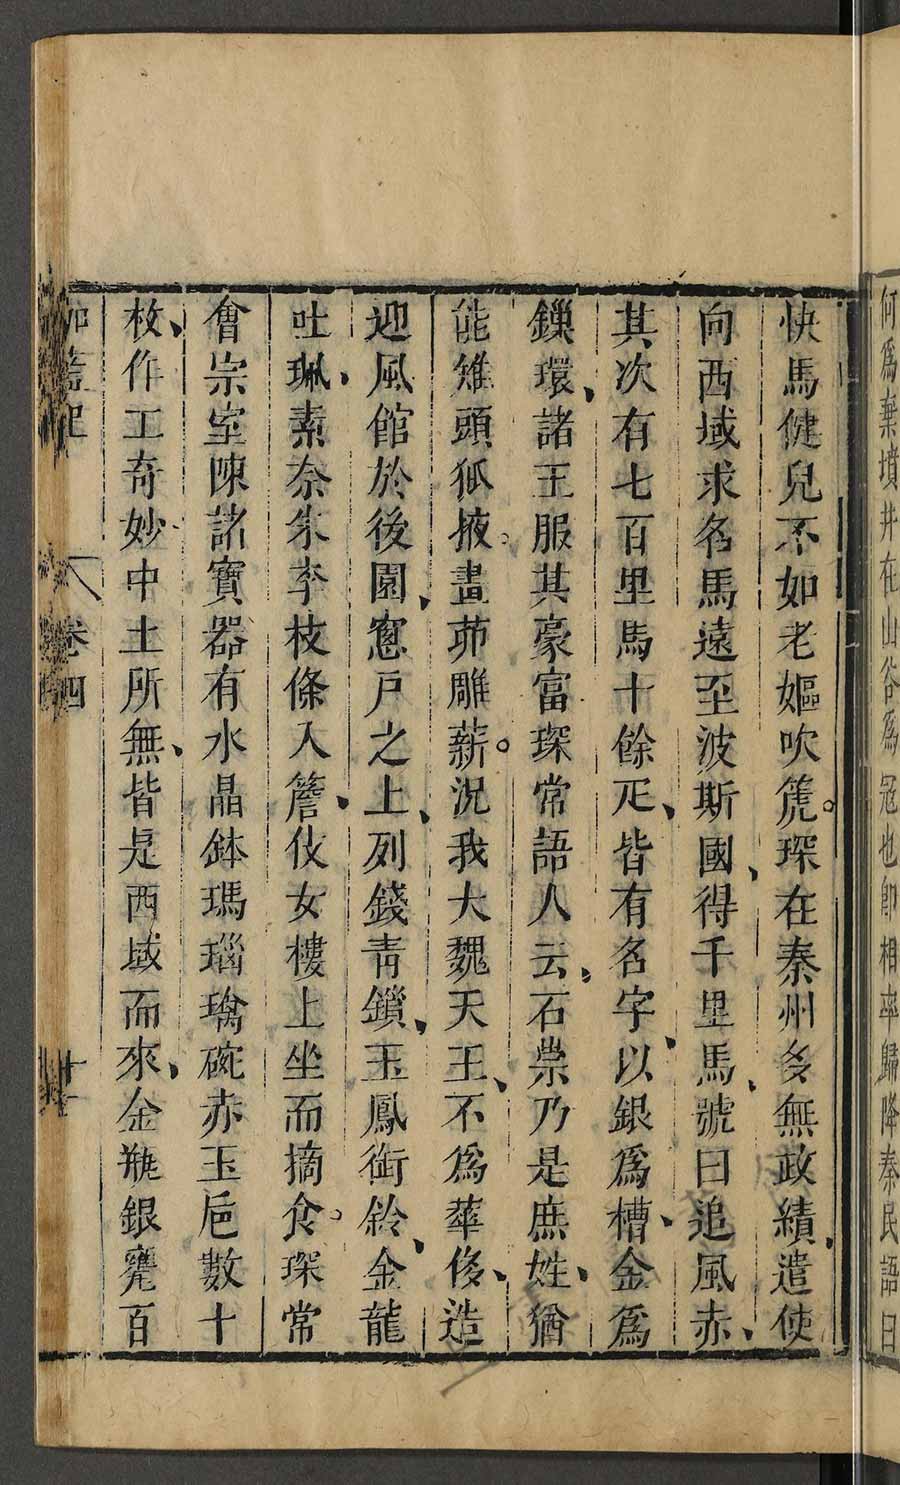 何爲棄墳井在山谷爲寇也卽相率歸降秦民語曰
快馬健兒不如老嫗吹篪。琛在秦州多無政績、遣使
向西域求名馬遠至波斯國、得千里馬、號曰追風赤、
其次有七百里馬十餘疋、皆有名字、以銀爲槽、金爲
鏁環、諸王服其豪富琛常語人云、石崇乃是庶姓、猶
能雉頭狐掖。畫茆雕薪。況我大魏天王、不爲華侈、造
迎風館於後園、窻戶之上、列錢靑鎖、玉鳳銜鈴、金龍
吐珮、素柰朱李枝條入簷、伎女樓上坐而摘食。琛常
會宗室陳諸寶器有水晶鉢瑪瑙琉碗赤玉巵數十
枚、作工奇妙中土所無、皆是西域而來、金甁銀甕百
伽藍記 卷四 十